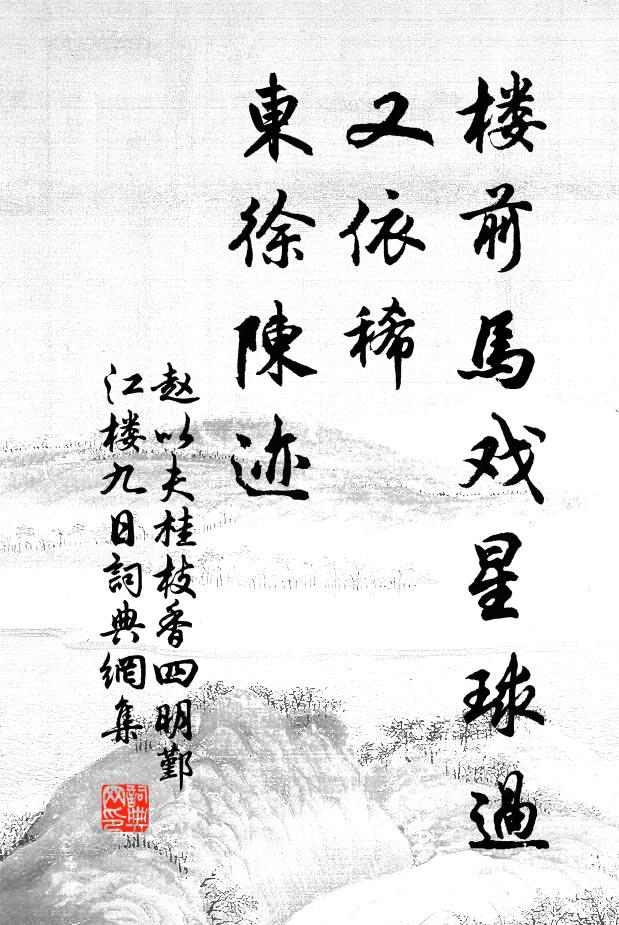 楼前馬戏星球過
又依稀
東徐陳迹
赵以夫桂枝香四明鄞
江楼九日詞典網集